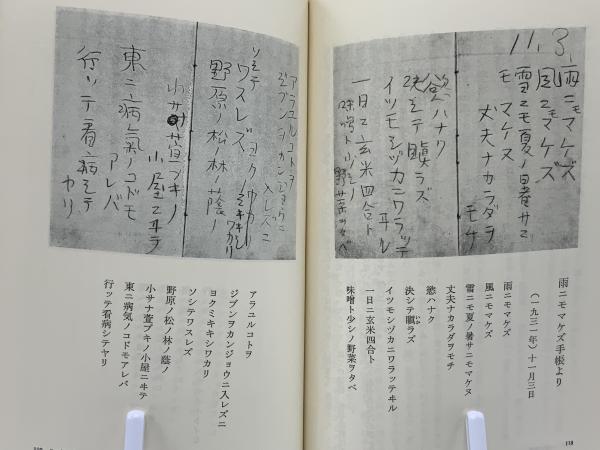 11.3.
雨ニモマケズ
風ニモマケズ
雪ニモ夏ノ暑サニモ
マケヌ
丈夫ナカラダヲ
モチ
慾ハナク
決シテ瞋ラズ
イツモシヅカニワラッテ
ヰル
一日ニ玄米四合ト
味噌ト少シノ
野菜ヲタベ
雨ニモマケズ手帳より
(一九三一年)十一月三日
雨ニモマケズ
風ニモマケズ
雪ニモ夏ノ暑サニモマケヌ
丈夫ナカラダヲモチ
慾ハナク
決シテ瞋ラズ
イツモシヅカニワラッテヰル
一日ニ玄米四合ト
味噌ト少シノ野菜ヲタベ
118
アラユルコトヲ
ジブンヲカンジョウニ
入レズニ
ヨクミキキシ
ワカリ
ソシテ
ワスレズ
野原ノ松ノ林ノ蔭ノ
小サナ萓ブキノ
小屋ニヰテ
東ニ病気ノコドモ
アレバ
行ッテ看病シテ
ヤリ
アラユルコトヲ
ジブンヲカンジョウニ入レズニ
ヨクミキキシワカリ
ソシテワスレズ
野原ノ松ノ林ノ蔭ノ
小サナ萓ブキノ小屋ニヰテ
東ニ病気ノコドモアレバ
行ッテ看病シテヤリ